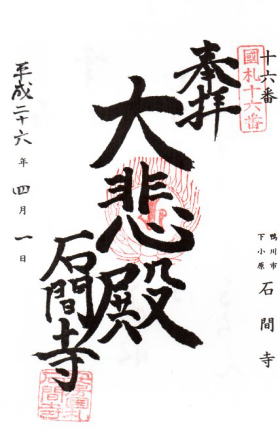 十六番
國札十六番
鴨川市
下小原
石間寺
奉拝
大悲殿
石間寺
平成二十六年四月一日